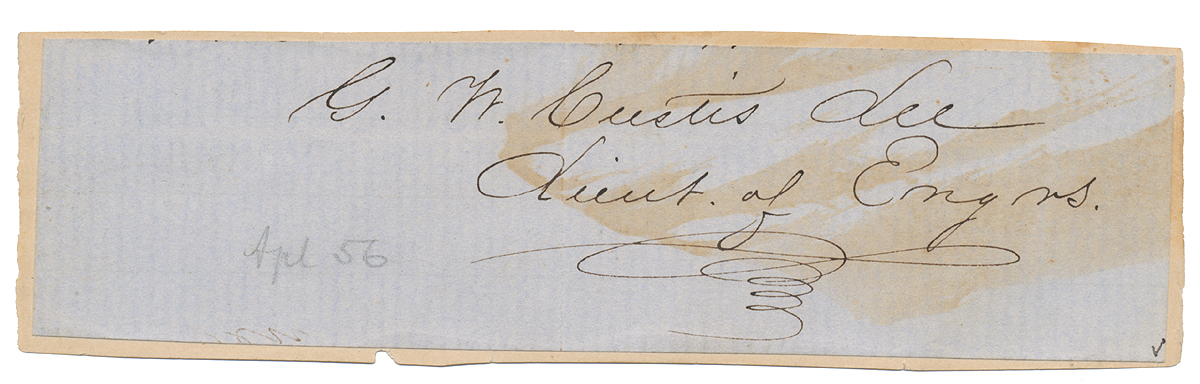 G. W. Custis Lee
Lieut. of Engrs.
Apl 56